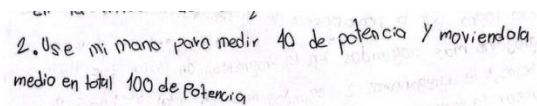 2. Use mi mano para medir 40 de potencia y moviendola
medio en total 100 de Potencia